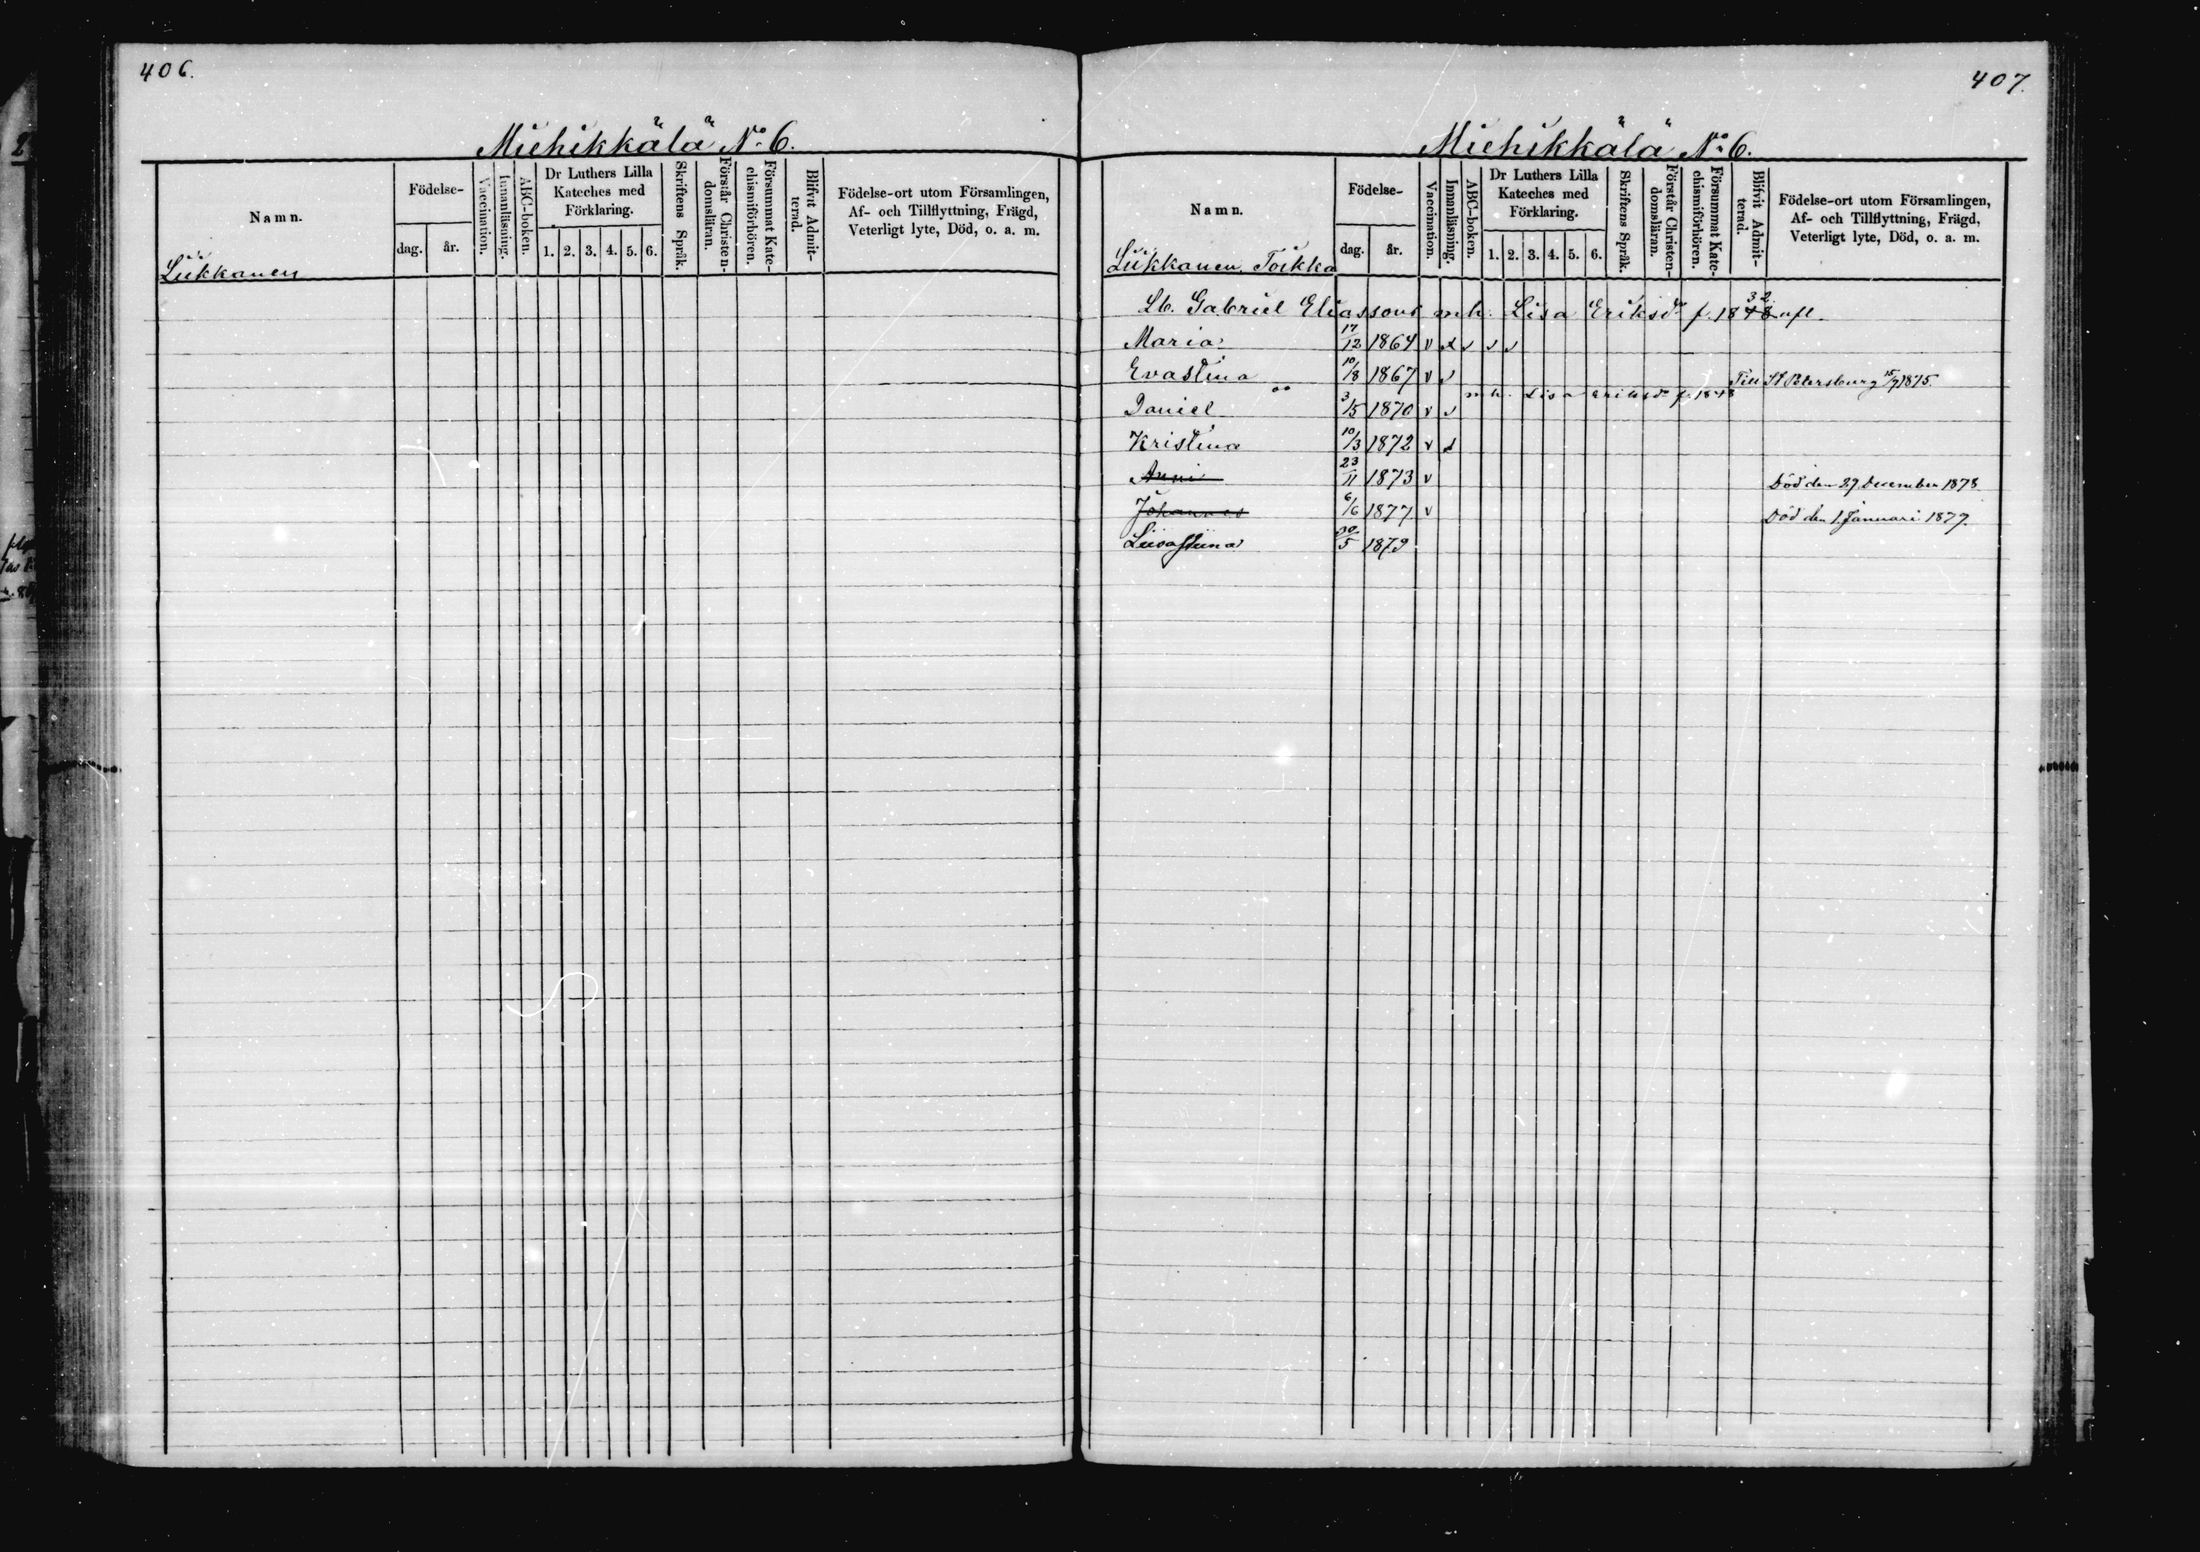 406.
Miehikkälä No 6.
Namn.
Födelse-
dag.
år.
Vaccination.
Innanläsning.
ABC-boken.
Dr Luthers Lilla
Kateches med
Förklaring.
1. 2. 3. 4. 5. 6.
Skriftens Språk.
Förstår Christen-
domsläran.
Försummat Kate-
chismiförhören.
Blifvit Admit-
terad.
Födelse-ort utom Församlingen,
Af- och Tillflyttning, Frägd,
Veterligt lyte, Död, o. a. m.
Liikkanen
407.
Miehikkälä No 6.
Namn.
Födelse-
dag.
år.
Vaccination.
Innanläsning.
ABC-boken.
Dr Luthers Lilla
Kateches med
Förklaring.
1. 2. 3. 4. 5. 6.
Skriftens Språk.
Förstår Christen-
domsläran.
Försummat Kate-
chismiförhören.
Blifvit Admit-
terad.
Födelse-ort utom Församlingen,
Af- och Tillflyttning, Frägd,
Veterligt lyte, Död, o. a. m.
Liikkanen Toikka
Lb. Gabriel Eliassons mh. Lisa Eriksdr f. 1848 32 afl.
Maria 17/12 1864 v v v v v
Evastina 10/8 1867 v v Till St Petersburg 15/9 1875.
oo mh. Lisa Eriksdr f. 1848
Daniel 3/5 1870 v v
Kristina 10/3 1872 v v
Anni 23/11 1873 v Död den 29 December 1878.
Johannes 6/6 1877 v Död den 1. Januari 1879.
Liisastiina 30/5 1879